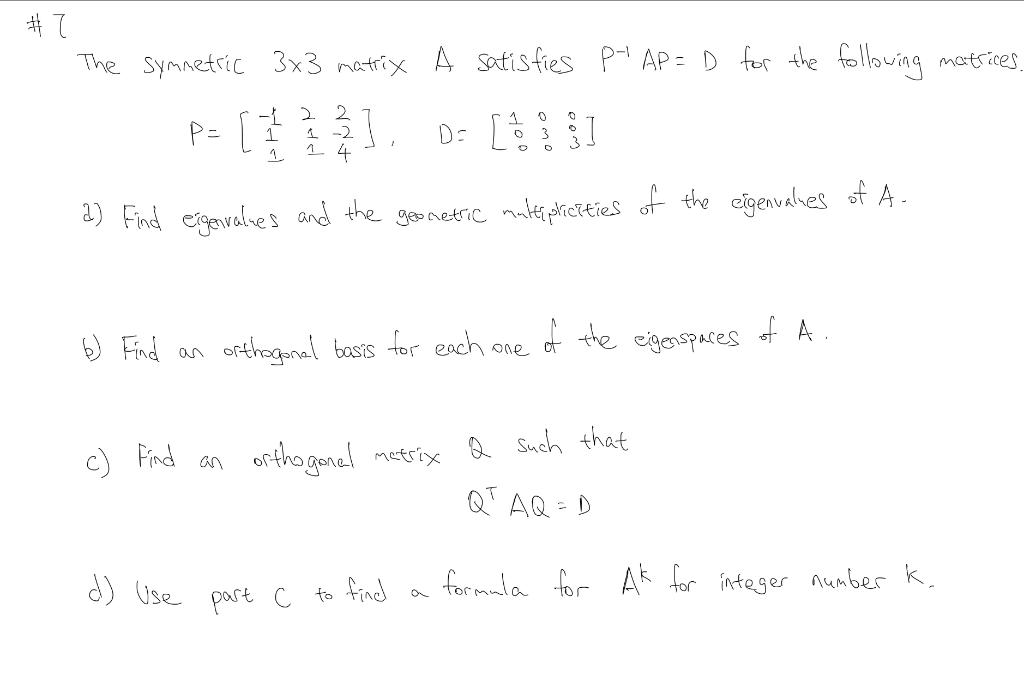 # 7
The symmetric 3x3 matrix A satisfies P⁻¹ AP = D for the following matrices.
P = [ -1 2 2
1 1 -2
1 1 4 ],  D = [ 1 0 0
0 3 0
0 0 3 ]
a) Find eigenvalues and the geometric multiplicities of the eigenvalues of A.
b) Find an orthogonal basis for each one of the eigenspaces of A.
c) Find an orthogonal matrix Q such that
Qᵀ AQ = D
d) Use part C to find a formula for Aᵏ for integer number k.